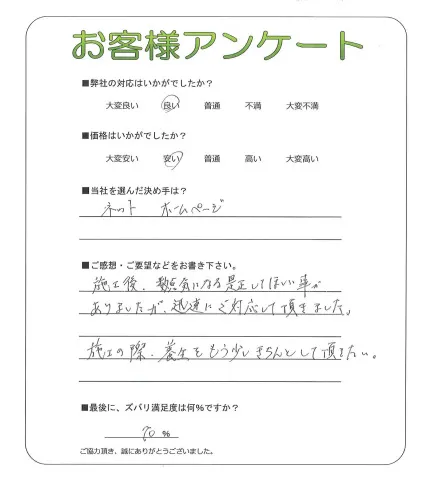 お客様アンケート
■弊社の対応はいかがでしたか？
大変良い 良い 普通 不満 大変不満
■価格はいかがでしたか？
大変安い 安い 普通 高い 大変高い
■当社を選んだ決め手は？
ネット ホームページ
■ご感想・ご要望などをお書き下さい。
施工後、数点気になる是正してほしい事が
ありましたが、迅速にご対応して頂きました。
施工の際、養生をもう少しきちんとして頂きたい。
■最後に、ズバリ満足度は何%ですか？
90 %
ご協力頂き、誠にありがとうございました。